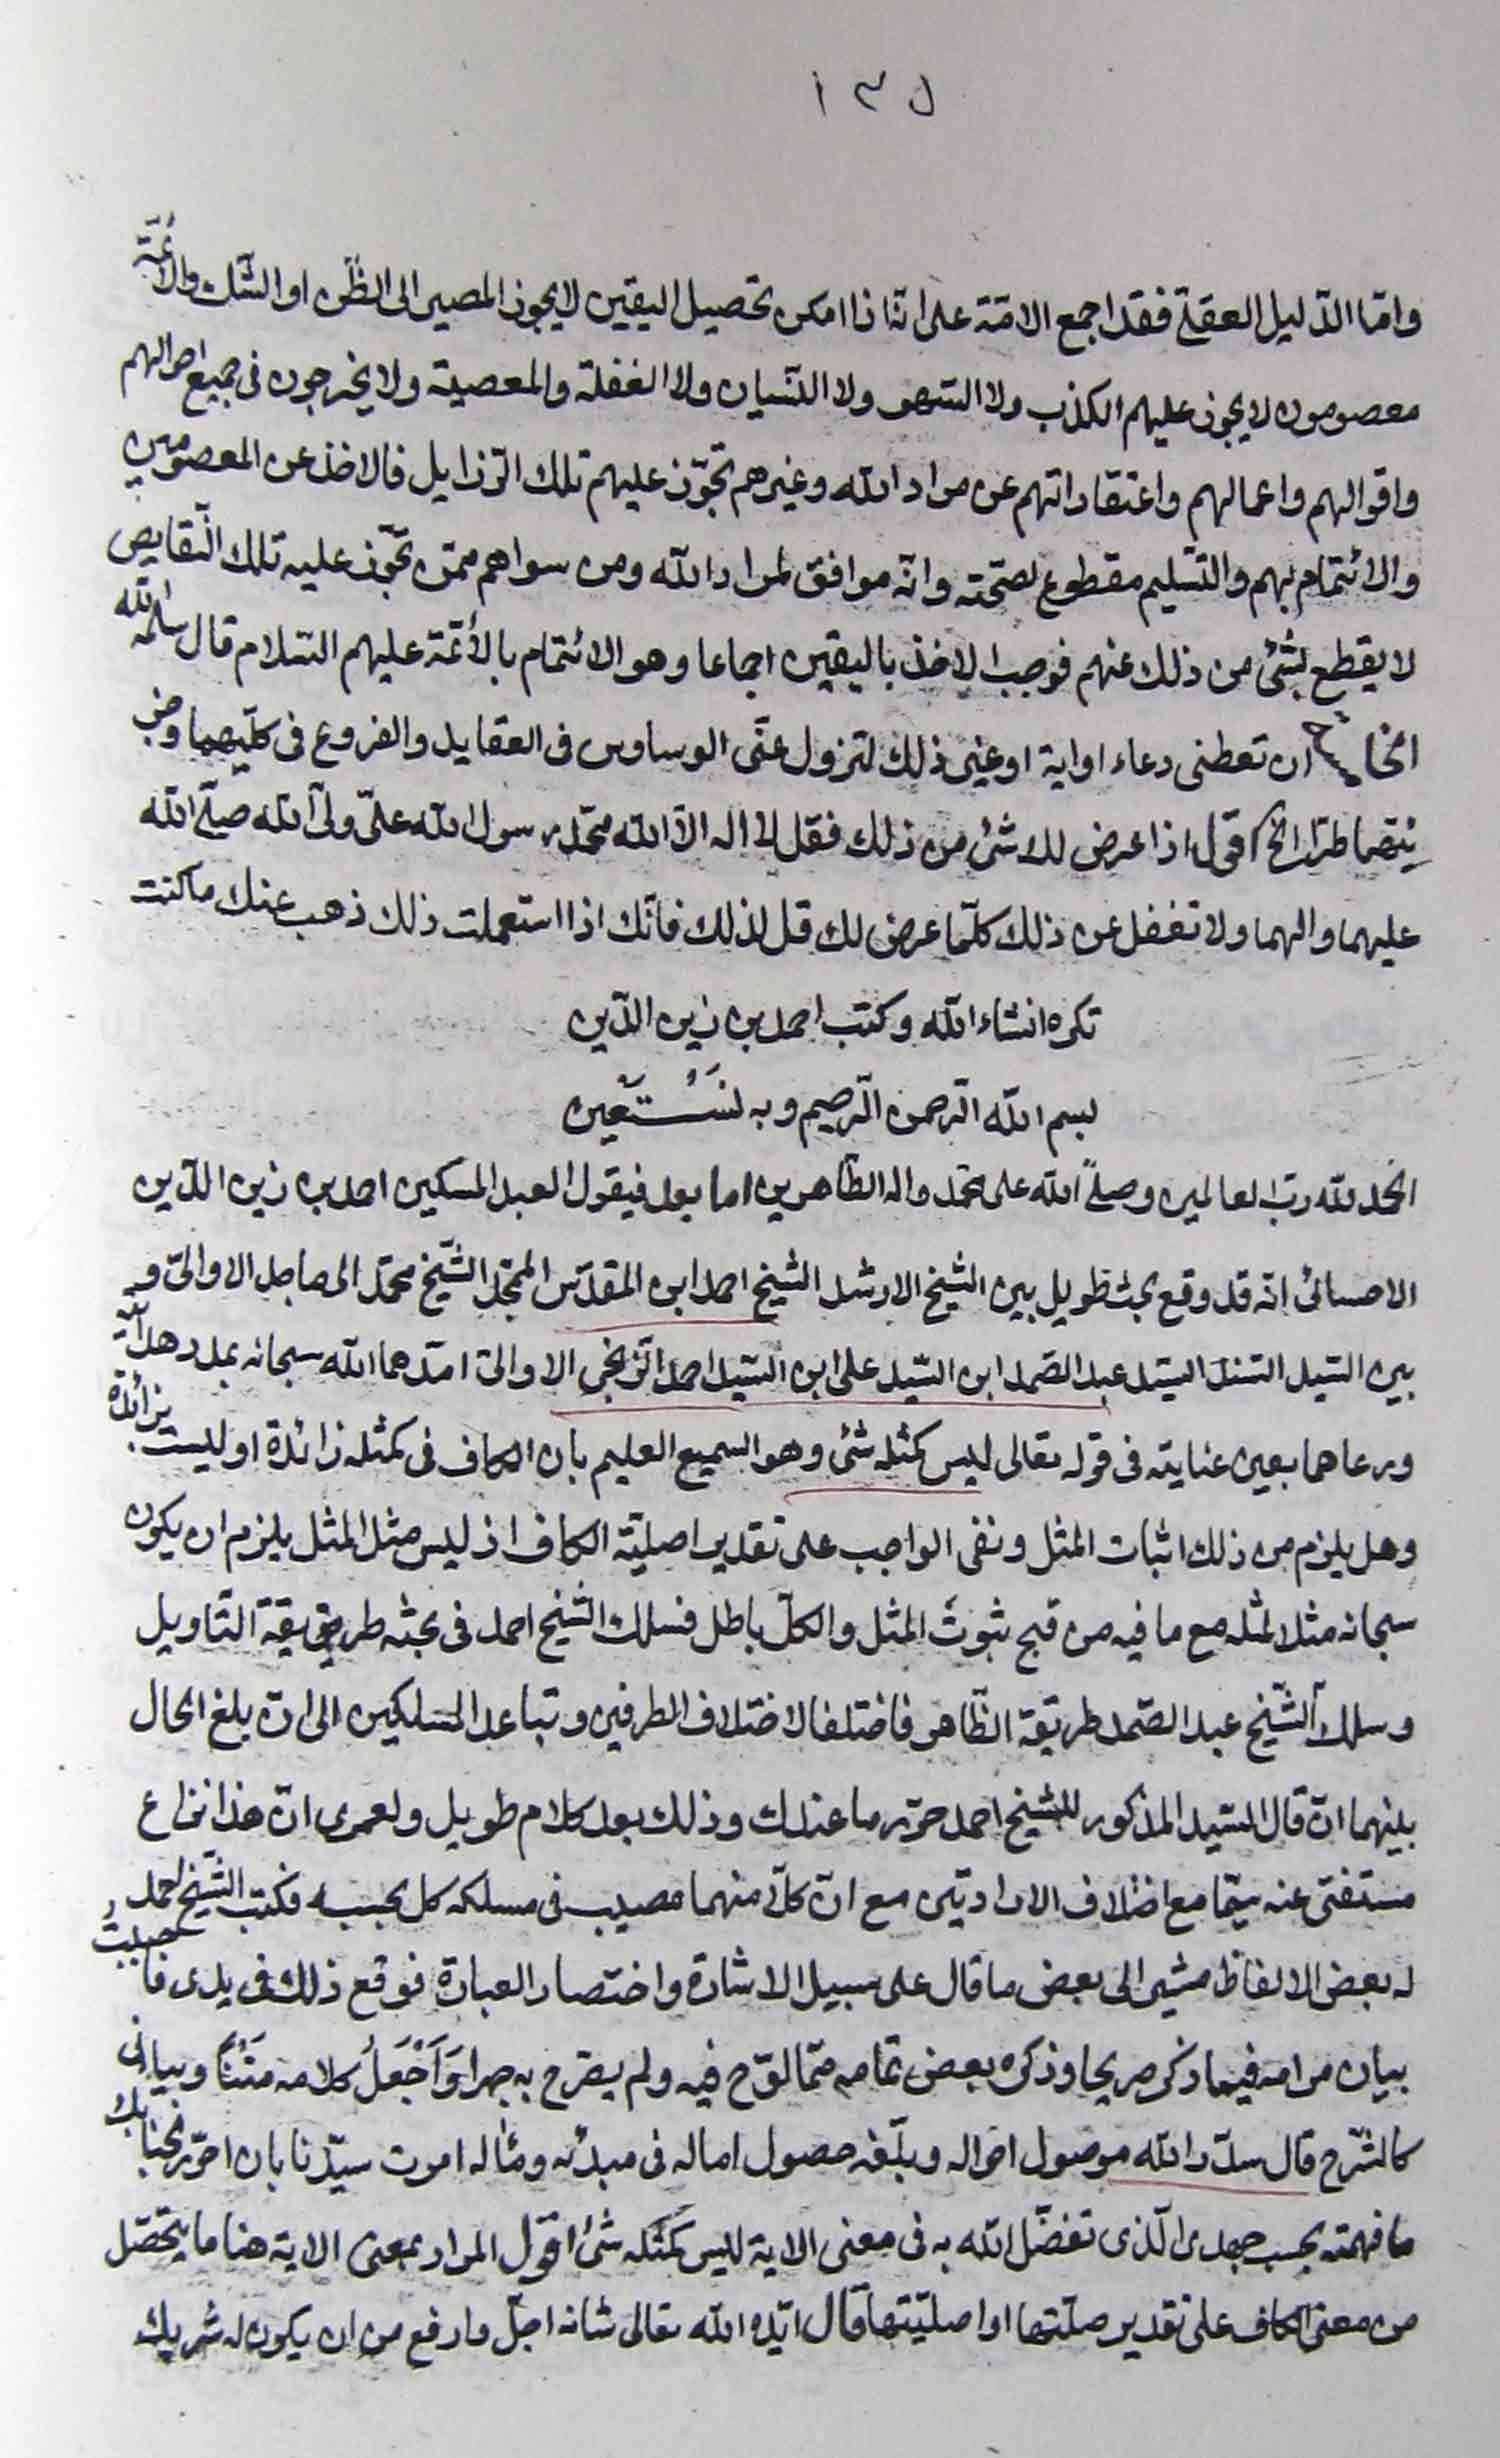 ١٣٥
وامّا الدّليل العقلي فقد اجمع الامّة على انّه اذا امكن تحصيل اليقين لا يجوز المصير الى الظّن او الشّك والائمّة
معصومون لا يجوز عليهم الكذب ولا السّهو ولا النّسيان ولا الغفلة والمعصية ولا يخرجون في جميع احوالهم
واقوالهم واعمالهم واعتقاداتهم عن مراد الله وغيرهم تجوّز عليهم تلك الرّذايل فالاخذ عن المعصومين
والائتمام بهم والتّسليم مقطوع بصحّته وانّه موافق لمراد الله ومن سواهم ممّن تجوّز عليه تلك النّقايص
لا يقطع بشئ من ذلك عنهم فوجب الاخذ باليقين اجماعا وهو الائتمام بالأئمّة عليهم السّلام قال سلّمه الله
ان تعطنى دعاء او اية او غير ذلك لتزول عنّى الوساوس فى العقايد والفروع فى كليهما
اقول اذا عرض لك شئ من ذلك فقل لا اله الّا الله محمّد رسول الله علىّ ولىّ الله صلّى الله
عليهما والهما ولا تغفل عن ذلك كلّما عرض لك قل لذلك فانّك اذا استعملت ذلك ذهب عنك ما كنت
تكره انشاء الله وكتب احمد بن زين الدّين
بسم الله الرّحمن الرّحيم وبه نَسْتَعين
الحمد لله ربّ العالمين وصلّى الله على محمّد واله الطّاهرين اما بعد فيقول العبد المسكين احمد بن زين الدّين
الاحسائى انّه قد وقع بحث طويل بين الشّيخ الارشد الشّيخ احمد ابن المقدّس الممجّد الشّيخ محمّد الى صاحل الاوالىّ و
بين السّيد السّند السّيد عبد الصّمد ابن السّيد على ابن السّيد احمد الزّنجى الاوالىّ امدّهما الله سبحانه بمدد هدايته
ورعاهما بعين عنايته فى قوله تعالى ليس كمثله شئ وهو السميع العليم بان الكاف فى كمثله زائدة او ليست بزائدة
وهل يلزم من ذلك اثبات المثل ونفى الواجب على تقدير اصليّة الكاف اذ ليس مثل المثل يلزم ان يكون
سبحانه مثلا لمثله مع ما فيه من قبح ثبوت المثل والكلّ باطل فسلك الشّيخ احمد فى بحثه طريقة التّاويل
وسلك الشّيخ عبد الصّمد طريقة الظّاهر فاختلفا لاختلاف الطرفين وتباعد المسلكين الى ان بلغ الحال
بينهما ان قال السّيد المذكور للشيخ احمد حرّر ما عندك وذلك بعد كلام طويل ولعمرى انّ هذا نزاع
مستغنى عنه سيّما مع اختلاف الارادتين مع انّ كلّا منهما مصيب فى مسلكه كل بحسبه فكتب الشّيخ احمد
له بعض الالفاظ مشير الى بعض ما قال على سبيل الاشارة واختصار العبارة فوقع ذلك فى يدى فاحببت
بيان مرامه فيما ذكر صريحا وذكر بعض تمامه ممّا لوّح فيه ولم يصّرح به جهرا وَاَجْعَلُ كلامه مَتْنًا وبيانى
كالشّرح قال سدّد الله موصول احواله وبلّغه حصول اماله فى مبدئه ومأله امرت سيّدنا بان احرّر لجنابك
ما فهمته بحسب جهدى الّذى تفضّل الله به فى معنى الاية ليس كمثله شئ اقول المراد بمعنى الاية هنا ما يتحصّل
من معنى الكاف على تقدير صلتها او اصليّتها قال ايّده الله تعالى شانه اجلّ وارفع من ان يكون له شريك